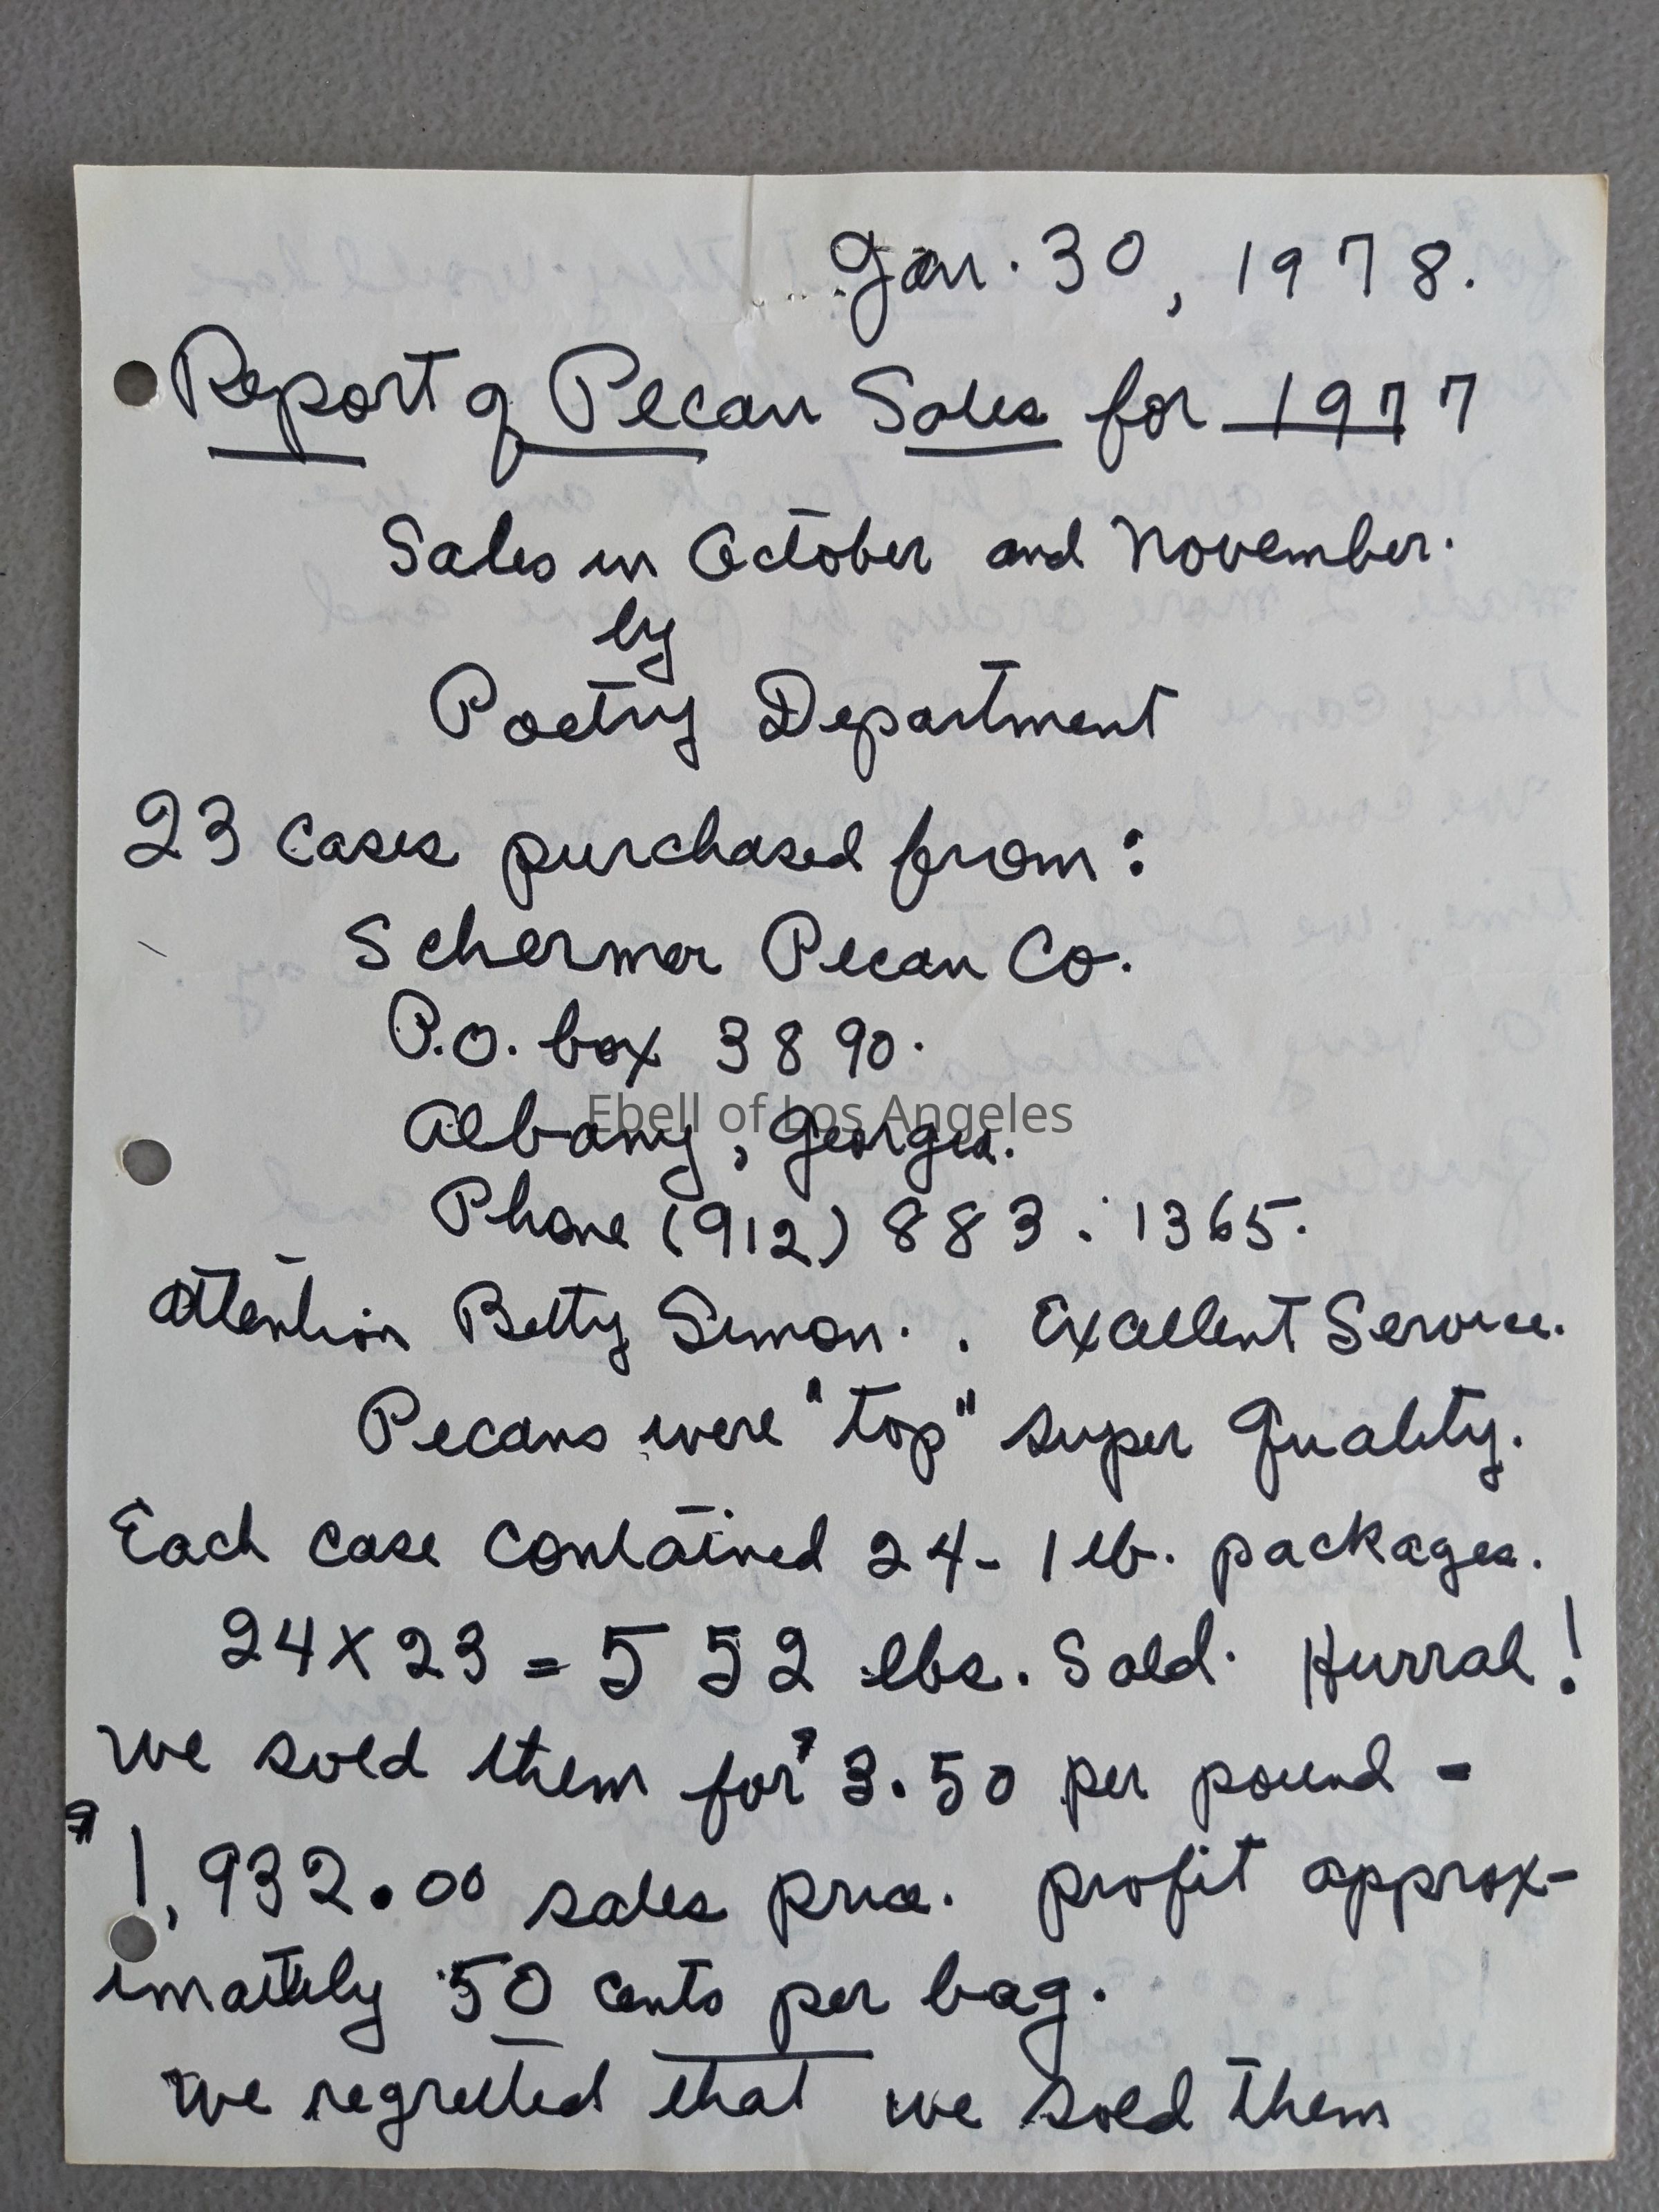 Jan. 30, 1978.
Report of Pecan Sales for 1977
Sales in October and November.
by
Poetry Department
23 cases purchased from:
Schermer Pecan Co.
P.O. box 3890.
Albany, Georgia.
Ebell of Los Angeles
Phone (912) 883 . 1365.
Attention Betty Simon. . Excellent Service.
Pecans were "top" super Quality.
Each case contained 24 - 1 lb. packages.
24 x 23 = 552 lbs. Sold. Hurrah!
We sold them for $3.50 per pound -
$1,932.00 sales price. profit approx-
imately 50 cents per bag.
We regretted that we sold them